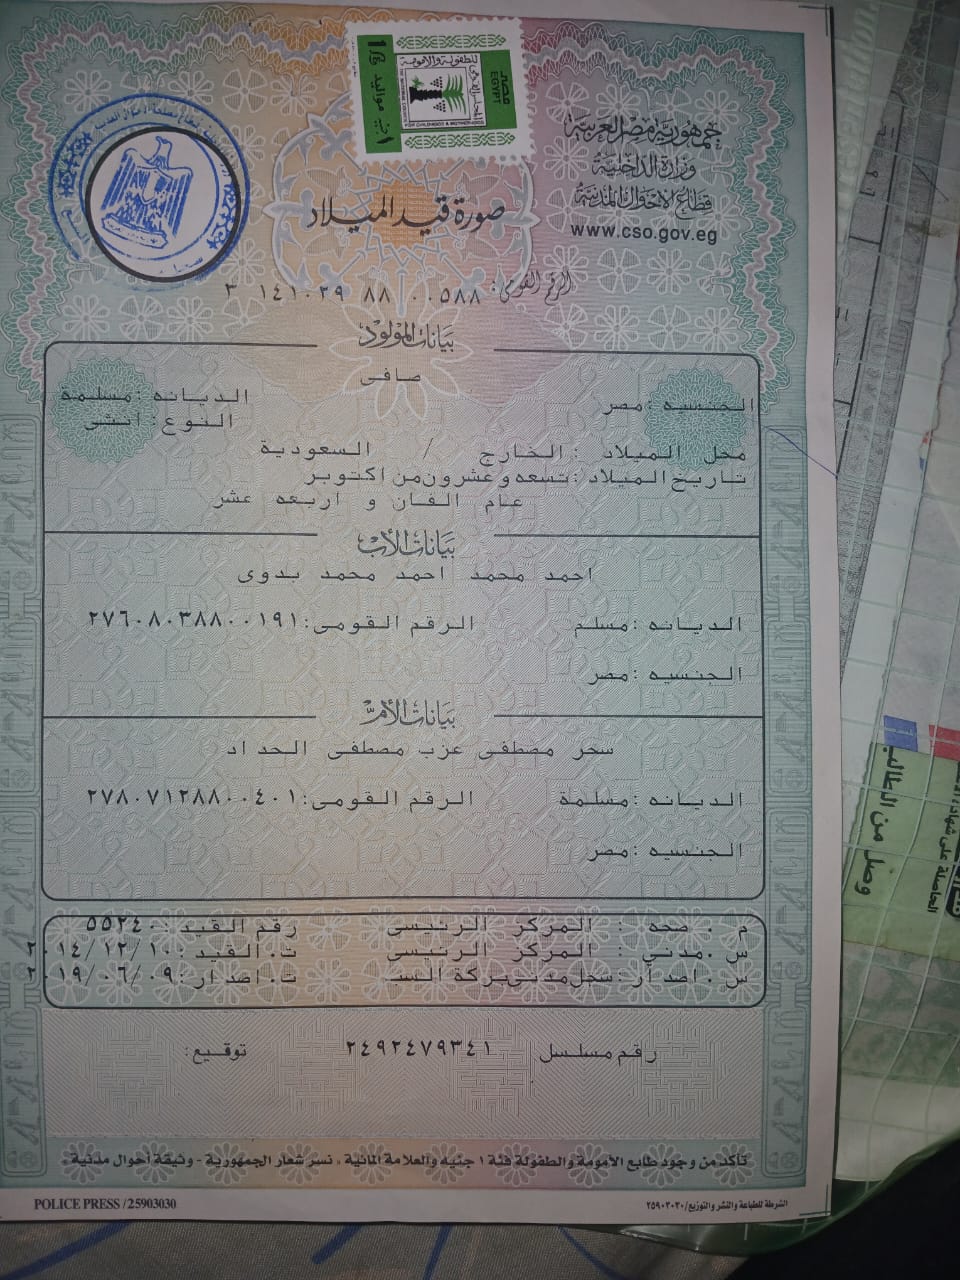 جمهورية مصر العربية
وزارة الداخلية
قطاع الأحوال المدنية
www.cso.gov.eg
مصر
EGYPT
المجلس القومى للطفولة والامومة
FOR CHILDHOOD & MOTHERHOOD
صورة قيد الميلاد
الرقم القومى: ٣ ١٤١٠٢٩ ٨٨ ٠٠٥٨٨
بيانات المولود
صافى
الجنسيه :مصر الديانه :مسلمة
النوع: انثى
محل الميلاد : الخارج / السعودية
تاريخ الميلاد :تسعه وعشرون من اكتوبر
عام الفان و اربعه عشر
بيانات الأب
احمد محمد احمد محمد بدوى
الديانه :مسلم الرقم القومى:٢٧٦٠٨٠٣٨٨٠٠١٩١
الجنسيه :مصر
بيانات الأم
سحر مصطفى عزب مصطفى الحداد
الديانه :مسلمة الرقم القومى:٢٧٨٠٧١٢٨٨٠٠٤٠١
الجنسيه :مصر
م . صحه : المركز الرئيسى رقم القيد :٥٥٢٤٠
س .مدني : المركز الرئيسى ت. القيد :٢٠١٤/١٢/١٠
س . اصدار: سجل مدنى بركة السب ت. اصدار :٢٠١٩/٠٦/٠٩
رقم مسلسل ٢٤٩٢٤٧٩٣٤١ توقيع:
تأكد من وجود طابع الأمومة والطفولة فئة ١ جنيه والعلامة المائية ، نسر شعار الجمهورية - وثيقة أحوال مدنية .
POLICE PRESS /25903030
الشرطة للطباعة والنشر والتوزيع/٢٥٩٠٣٠٣٠
وصل من الطالب